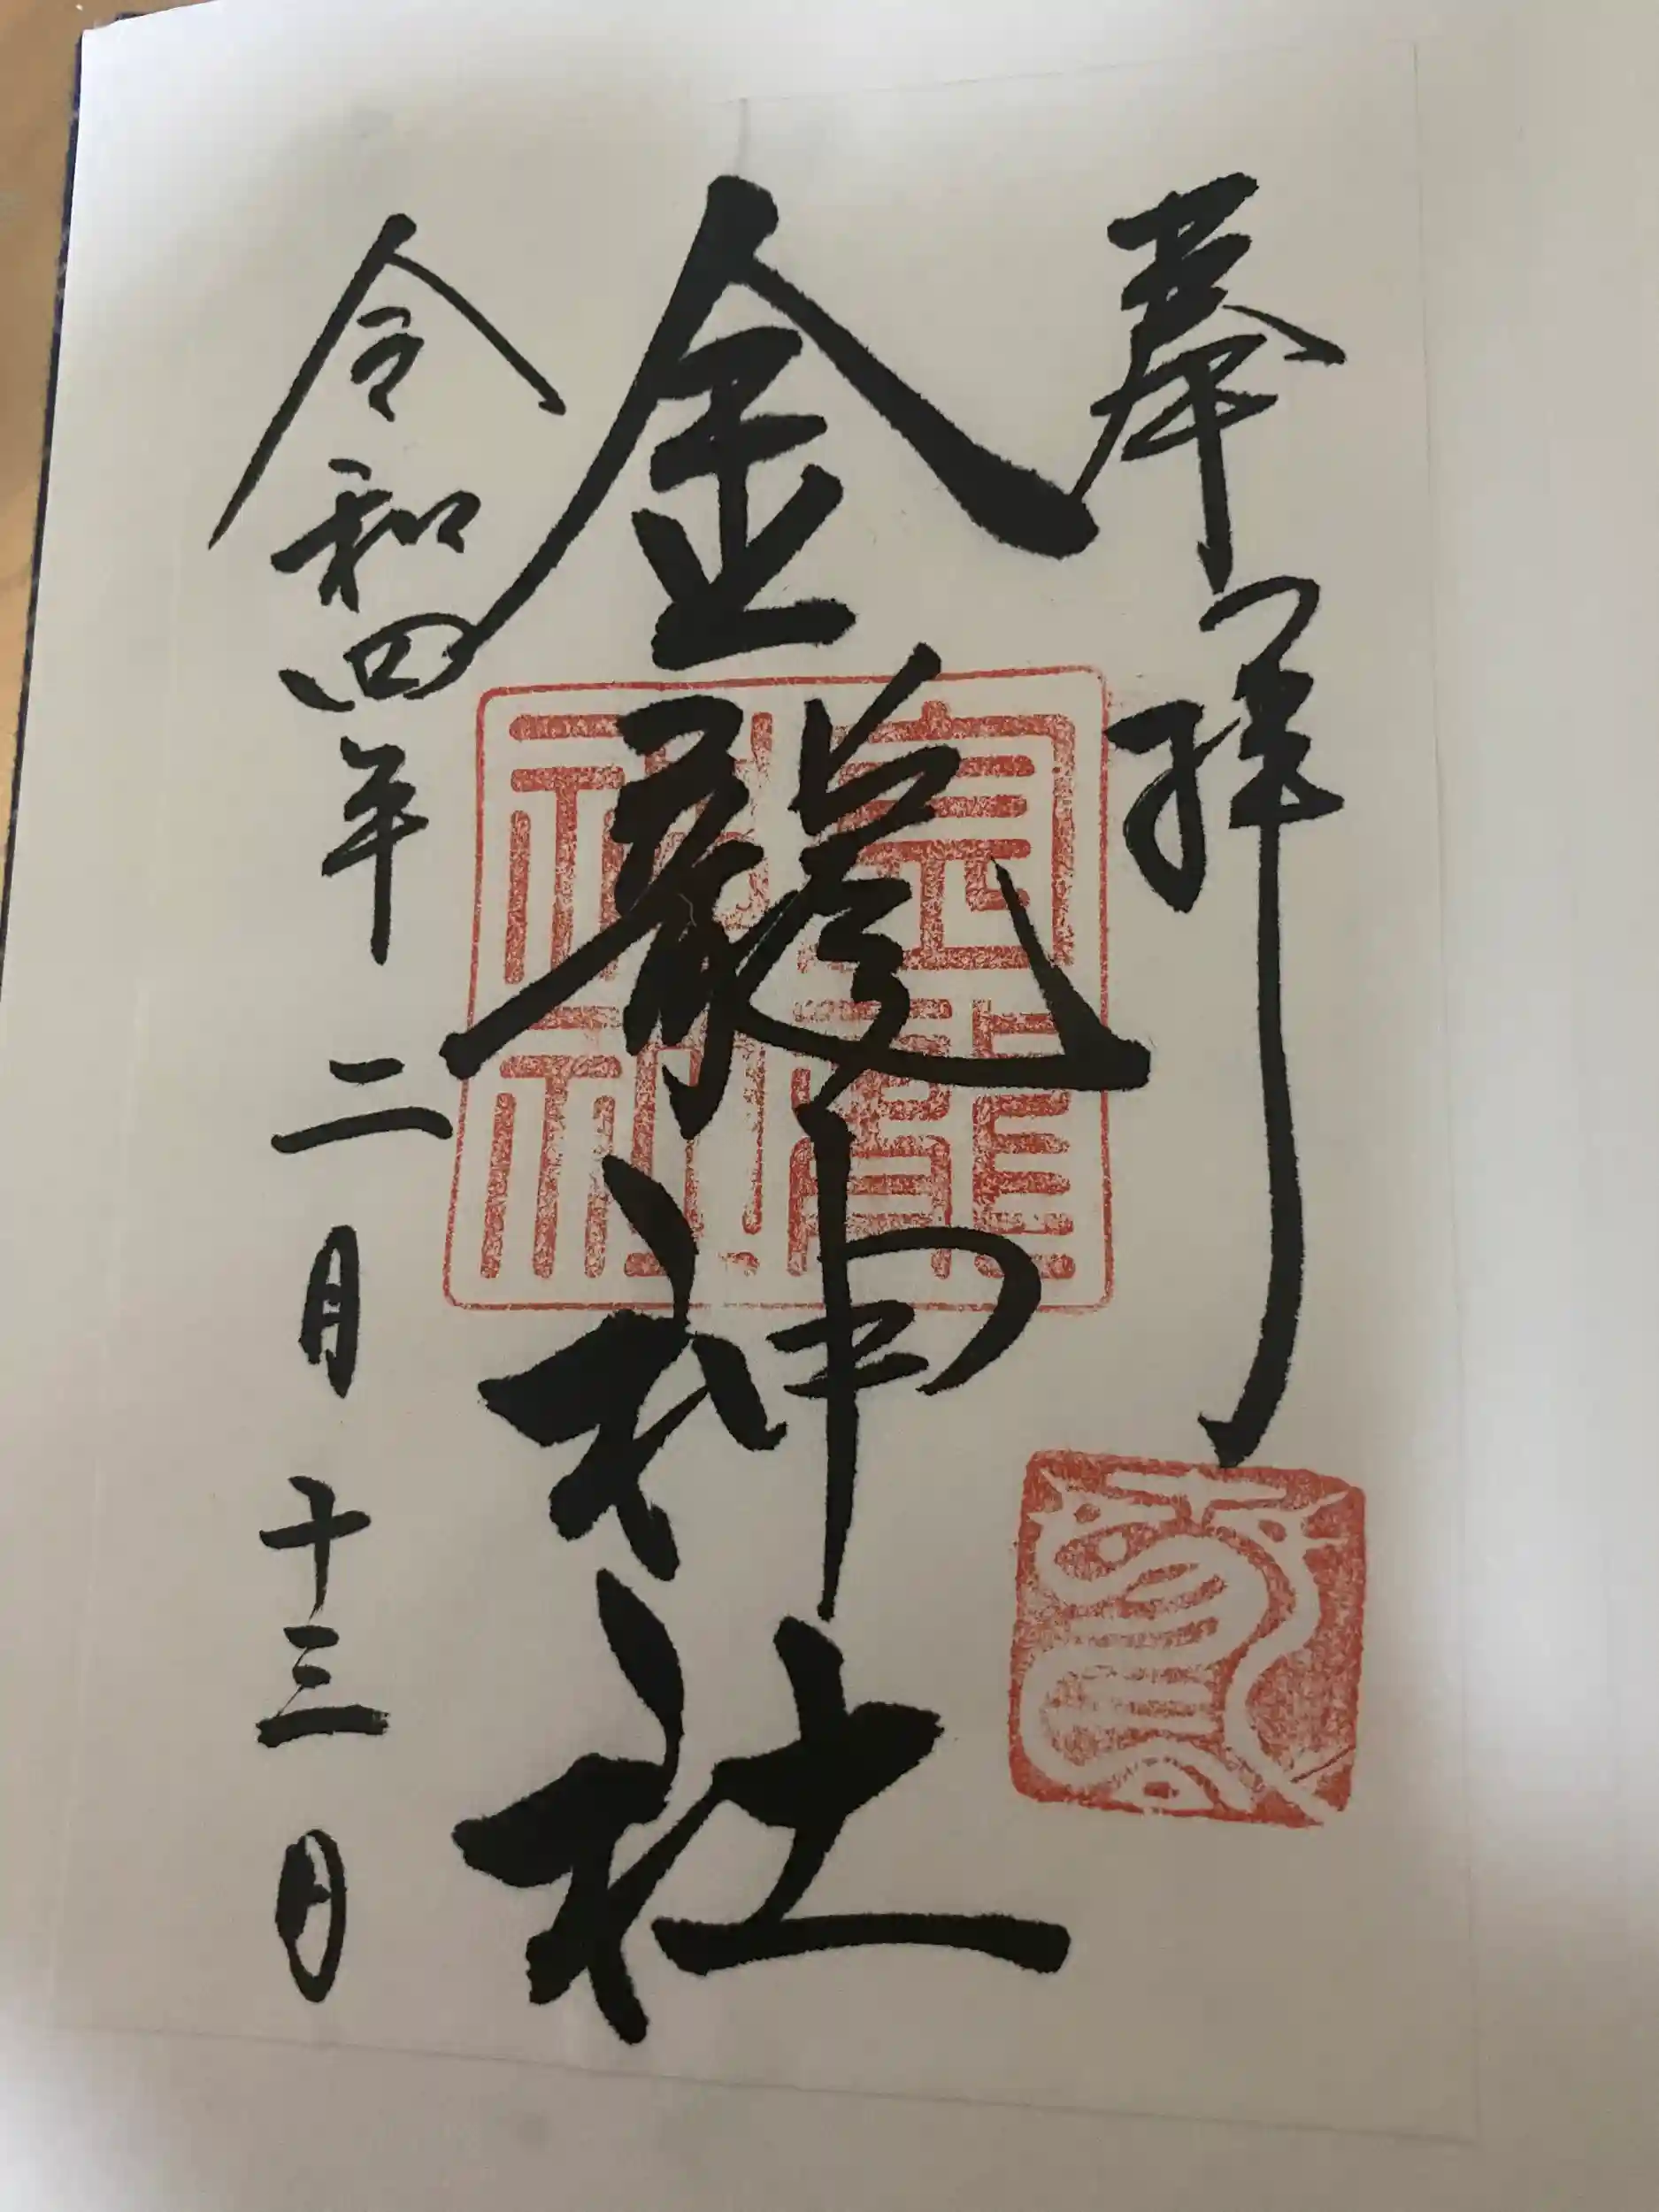 奉拝
金龍神社
令和四年二月十三日
金龍神社